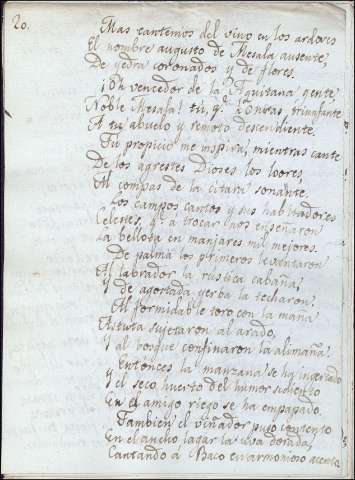 20.
Mas cantemos del vino en los ardores
El nombre augusto de Mesala ausente,
De yedra coronados y de flores.
¡Oh vencedor de la Aquitana gente,
Noble Mesala! tú, q.e honras, triunfante
A tu abuelo y remoto descendiente.
Tu propicio me inspira, mientras cante
De los agrestes Dioses los loores,
Al compas de la citara sonante.
Los campos canto, y sus habitadores
Celestes, q.e a trocar nos enseñaron
La bellota en manjares mil mejores.
De palma los primeros levantaron
El labrador la rustica cabaña,
Y de agostada yerba la techaron.
Al formidable toro con la maña
Astuta sujetaron al arado,
Y al bosque confinaron la alimaña.
Entonces la manzana se ha ingertado
Y el seco huerto del humor sediento
En el amigo riego se ha empapado.
Tambien el viñador puso contento
En el ancho lagar la uva dorada,
Cantando a Baco en armonioso acento